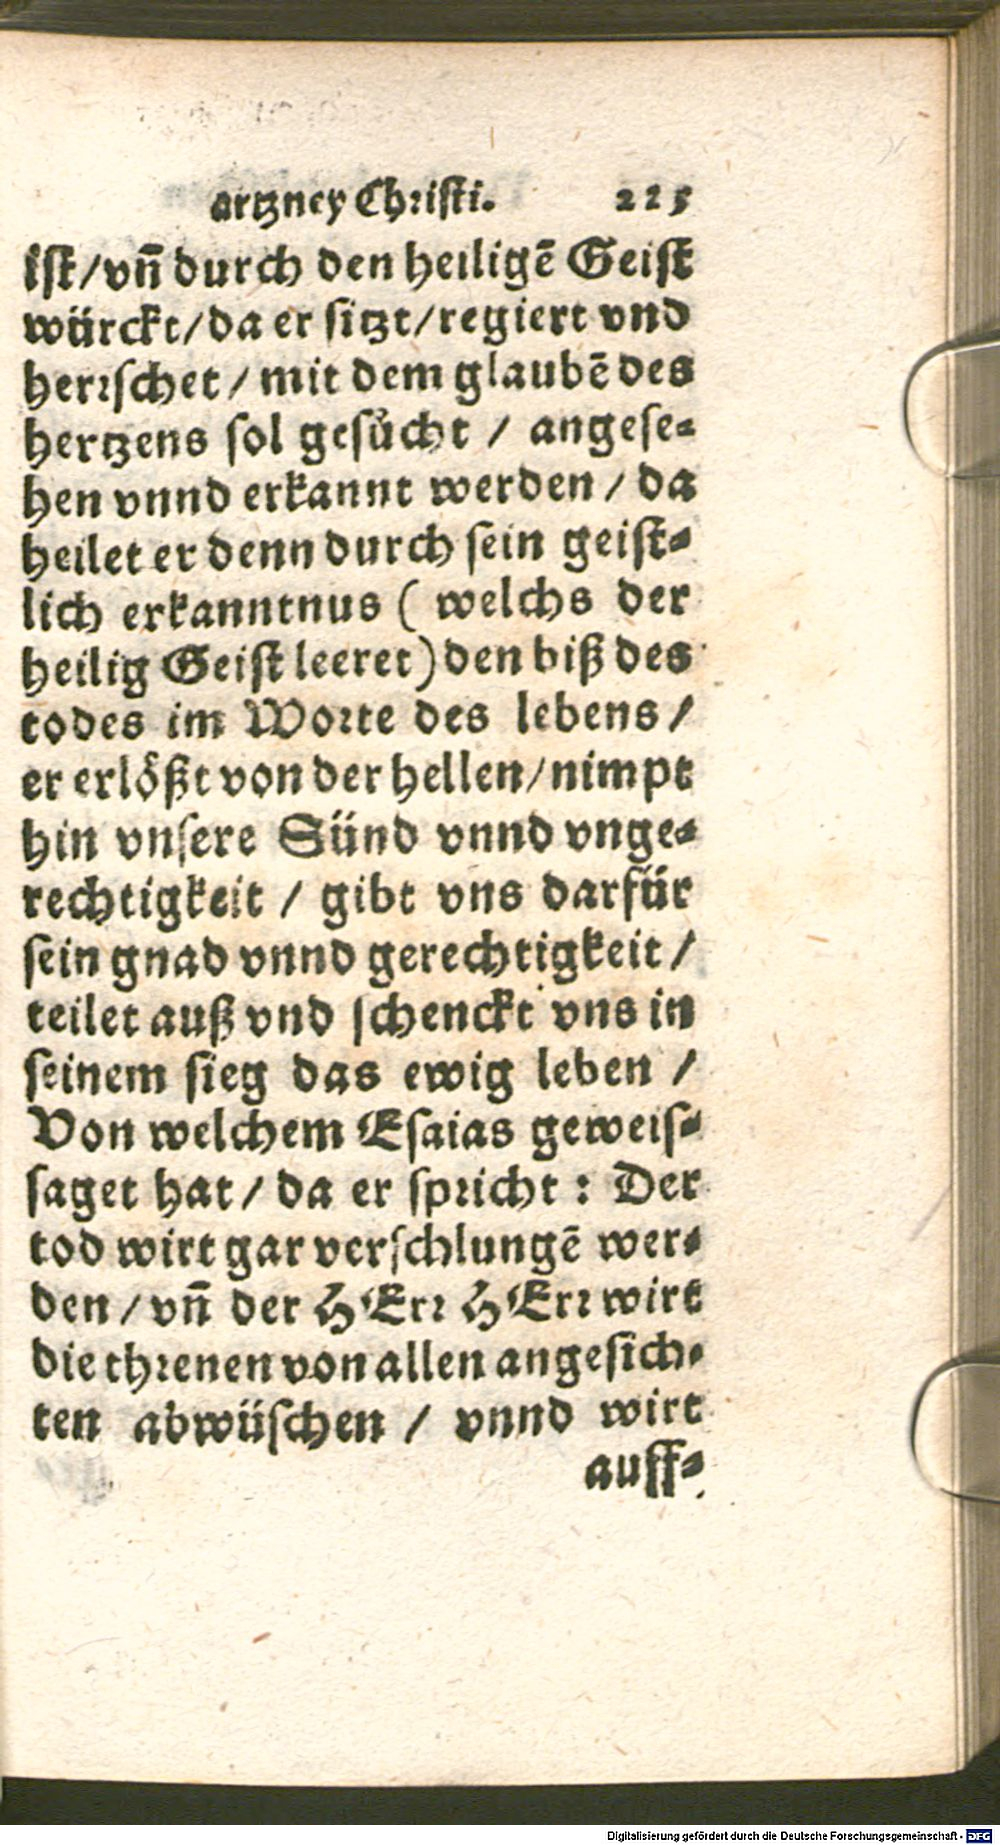 artzney Christi. 225
ist/vn̄ durch den heiligē Geist
würckt/da er sitzt/regiert vnd
herrschet/mit dem glaubē des
hertzens sol gesůcht / angese-
hen vnnd erkannt werden/da
heilet er denn durch sein geist-
lich erkanntnus ( welchs der
heilig Geist leeret) den biß des
todes im Worte des lebens/
er erlößt von der hellen/nimpt
hin vnsere Sünd vnnd vnge-
rechtigkeit / gibt vns darfür
sein gnad vnnd gerechtigkeit/
teilet auß vnd schenckt vns in
seinem sieg das ewig leben /
Von welchem Esaias geweis-
saget hat/da er spricht : Der
tod wirt gar verschlungē wer-
den/vn̄ der HErr HErr wirt
die threnen von allen angesich-
ten abwüschen / vnnd wirt
auff-
Digitalisierung gefördert durch die Deutsche Forschungsgemeinschaft - DFG